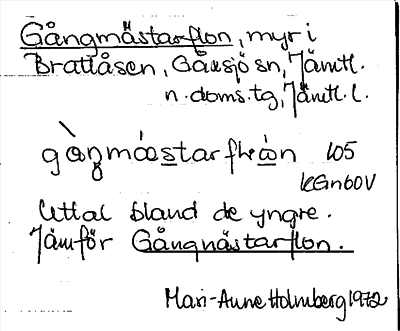 Gångmästarflon, myr i
Brattåsen, Gåxsjö sn, Jämtl.
n. doms.tg, Jämtl. l.
105
Uttal bland de yngre.
Jämför Gångnästarflon.
Mari-Anne Holmberg 1972